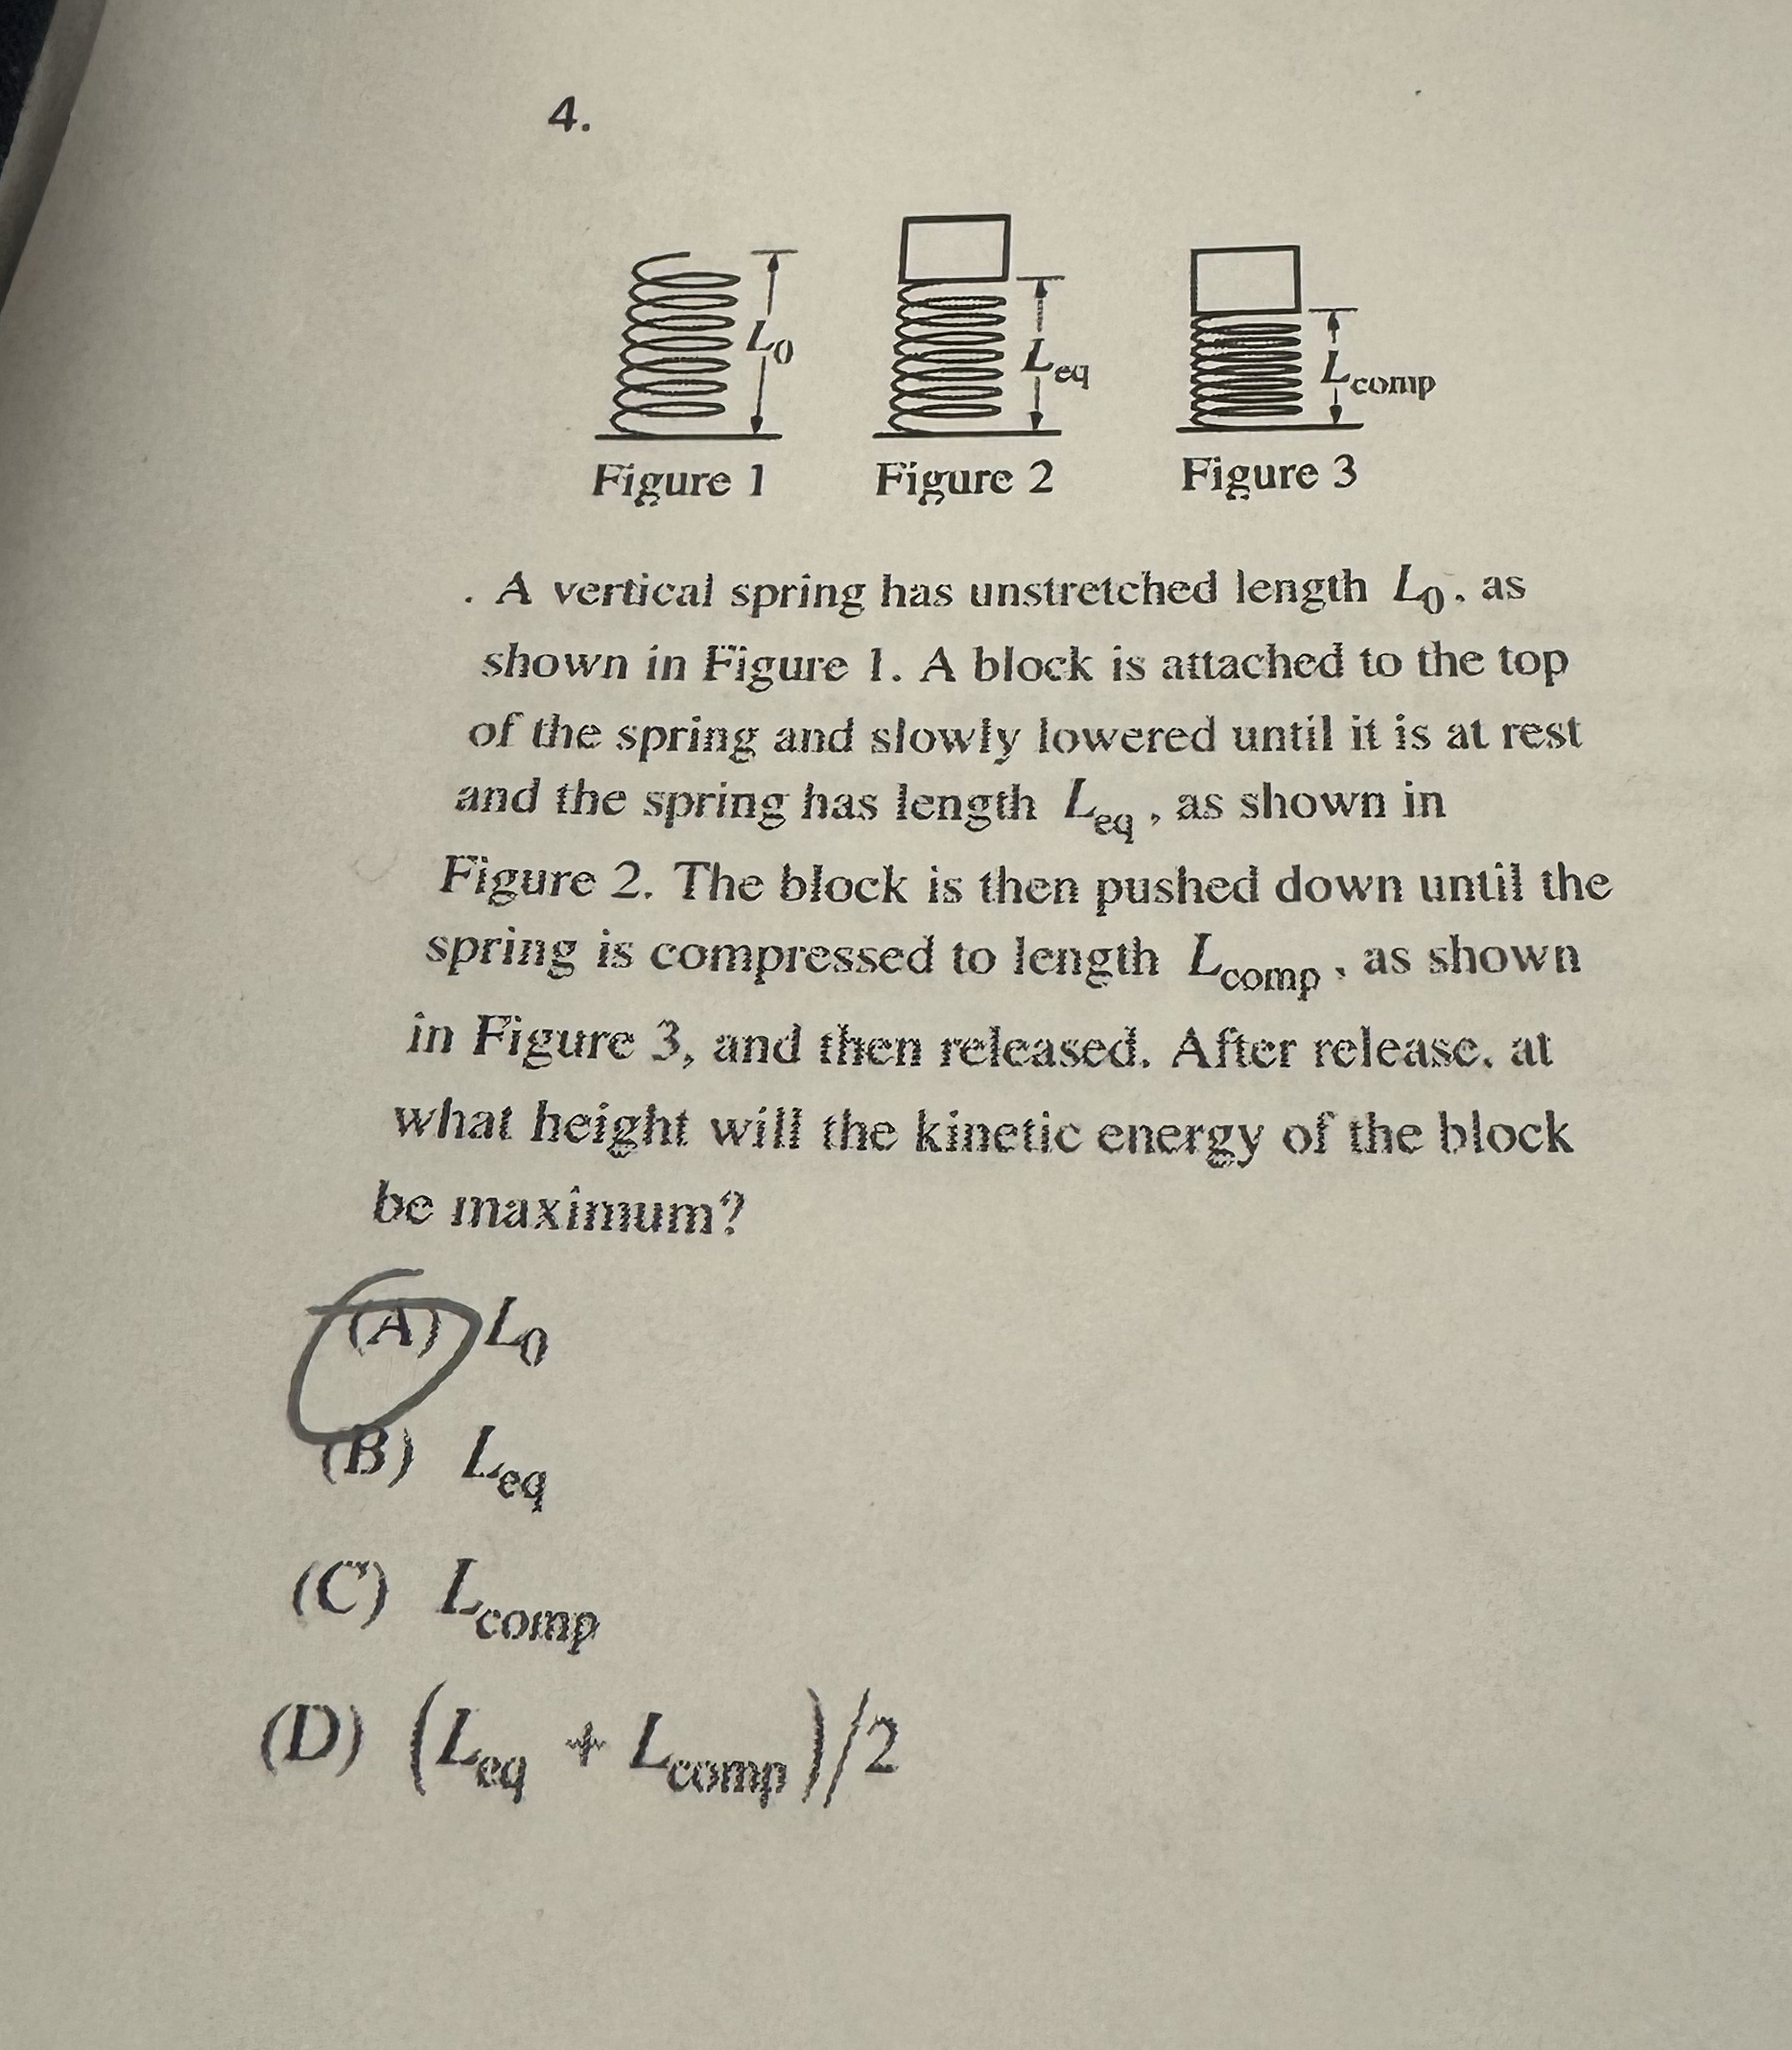 4.
L0
Leq
Lcomp
Figure 1
Figure 2
Figure 3
. A vertical spring has unstretched length L0, as
shown in Figure 1. A block is attached to the top
of the spring and slowly lowered until it is at rest
and the spring has length Leq, as shown in
Figure 2. The block is then pushed down until the
spring is compressed to length Lcomp, as shown
in Figure 3, and then released. After release, at
what height will the kinetic energy of the block
be maximum?
(A) L0
(B) Leq
(C) Lcomp
(D) (Leq + Lcomp)/2